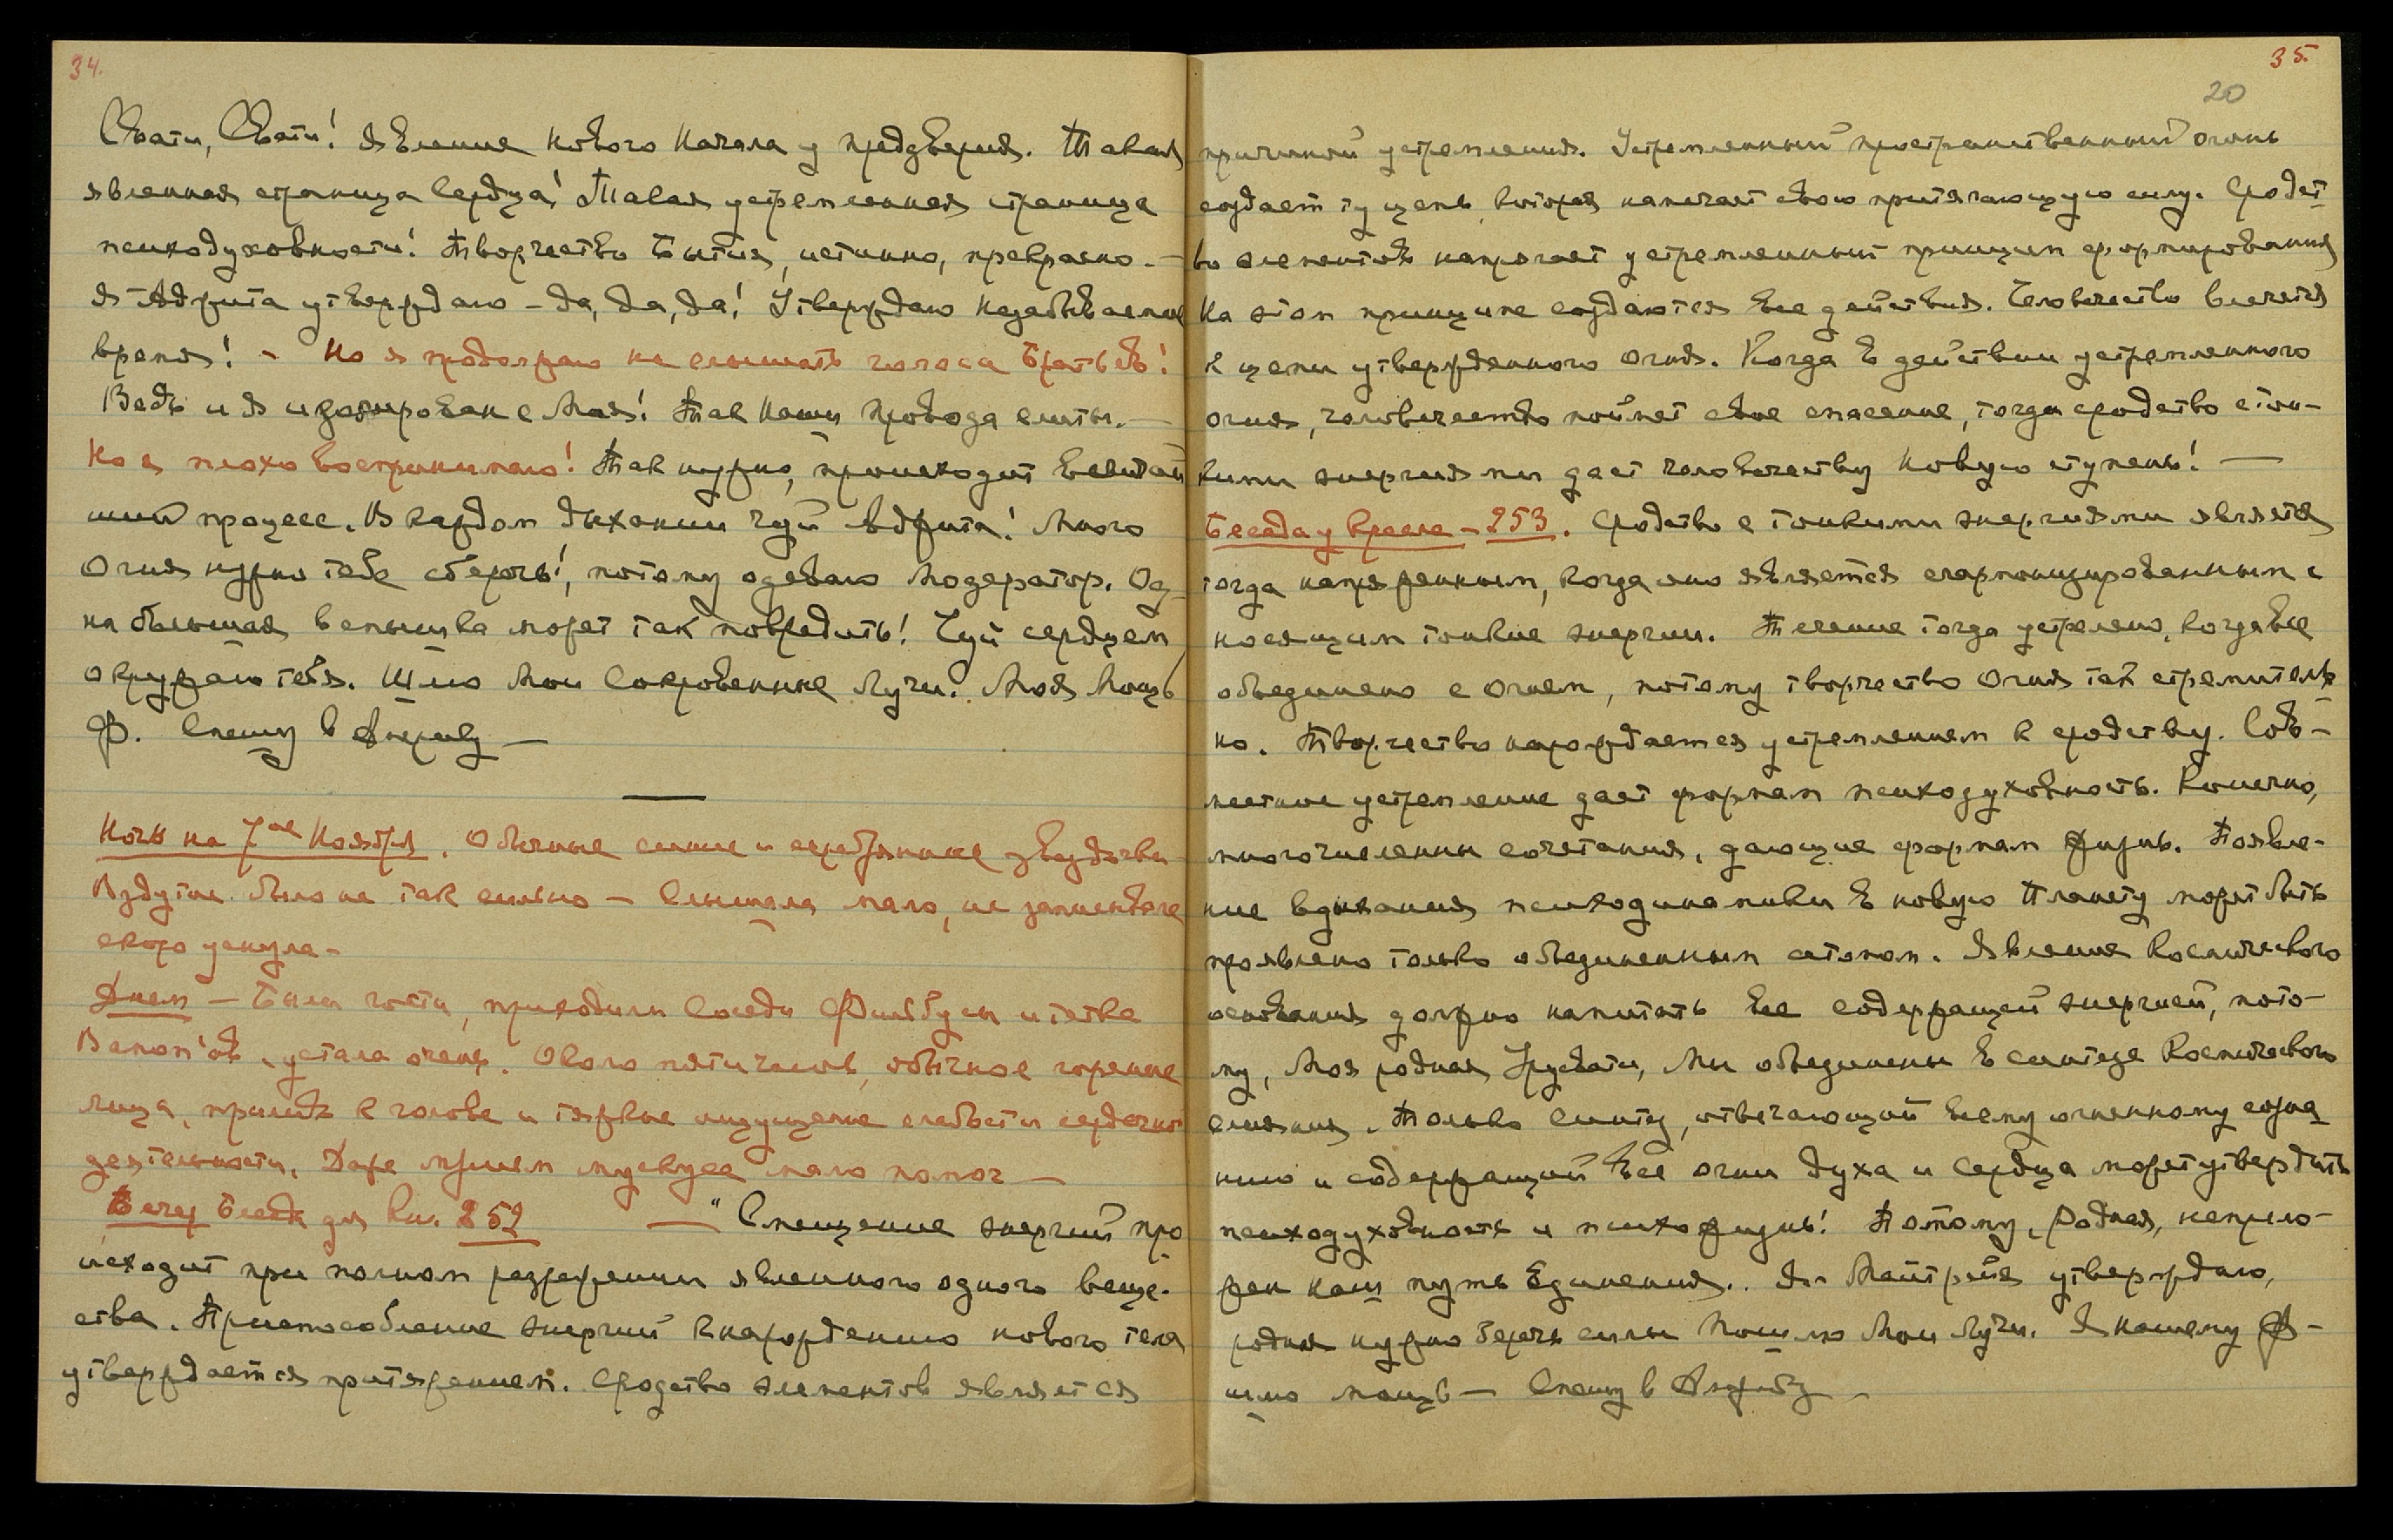 34.
Свати, Свати! Явление Нового Начала у преддверия. Такая
явленная страница Сердца! Такая устремленная страница
психодуховности! Творчество Бытия, истинно, прекрасно. —
Я утверждаю — да, да, да! Утверждаю незабываемое
время! — Но я продолжаю не слышать голоса Братьев!
Ведь и Я изолирован с Мая! Так Наши провода слиты. —
Но я плохо воспринимаю! Так нужно, происходит
ший процесс. В каждом дыхании чуй! Много
Огня нужно тебе сберечь!, потому одеваю Модератор. Од-
на большая вспышка может так повредить! Чуй сердцем,
окружаю тебя. Шлю Мои Сокровенные Лучи. Моя Мощь
Ф. Спешу в
Ночь на 7ое Ноября. Обычные синие и серебряные звездочки
Вздутие было не так сильно — Слышала мало, не записывала
скоро уснула —
Днем — Были гости, приходили Соседи и тетка
устала очень. Около пяти часов, обычное горение
лица, прилив к голове и тяжкое ощущение слабости сердечной
деятельности. Даже прием мускуса мало помог —
Вечер Беседа для Кн. 252 — "Смещение энергий про
исходит при полном разряжении явленного одного веще-
ства. Приспособление энергий к нарождению нового тела
утверждается притяжением. Сродство элементов является
35.
20
причиной устремления. Устремленный пространственный огонь
создает ту цепь, которая напитает свою притягающую силу. Сродст
во элементов напрягает устремленный принцип формирования
На этом принципе создаются все действия. Человечество влечется
к цепи утвержденного Огня. Когда в действии устремленного
огня, человечество поймет свое спасение, тогда сродство с тон-
кими энергиями даст человечеству Новую ступень! —
Беседа у Кресла — 253. Сродство с тонкими энергиями является
тогда напряженным, когда оно является сгармонизированным с
носящим тонкие энергии. Течение тогда устремлено, когда все
объединено с Огнем, потому творчество Огня так стремитель
но. Творчество нарождается устремлением к сродству. Сов-
местное устремление дает формам психодуховность. Конечно,
многочисленны сочетания, дающие формам жизнь. Появле-
ние вдыхания психодинамики в новую Планету может быть
проявлено только объединенным атомом. Явление Космического
основания должно напитать все содержащей энергией, пото-
му, Моя родная Урусвати, Мы объединены в синтезе Космического
слияния. Только Синтез, отвечающий всему огненному созна
нию и содержащий все огни Духа и Сердца может утвердить
психодуховность и психожизнь! Потому, Родная, непрело-
жен Наш путь Единения.. Я — Майтрейя утверждаю,
родная нужно беречь силы Пошлю Мои Лучи. Я Нашему Ф —
шлю мощь — Спешу в